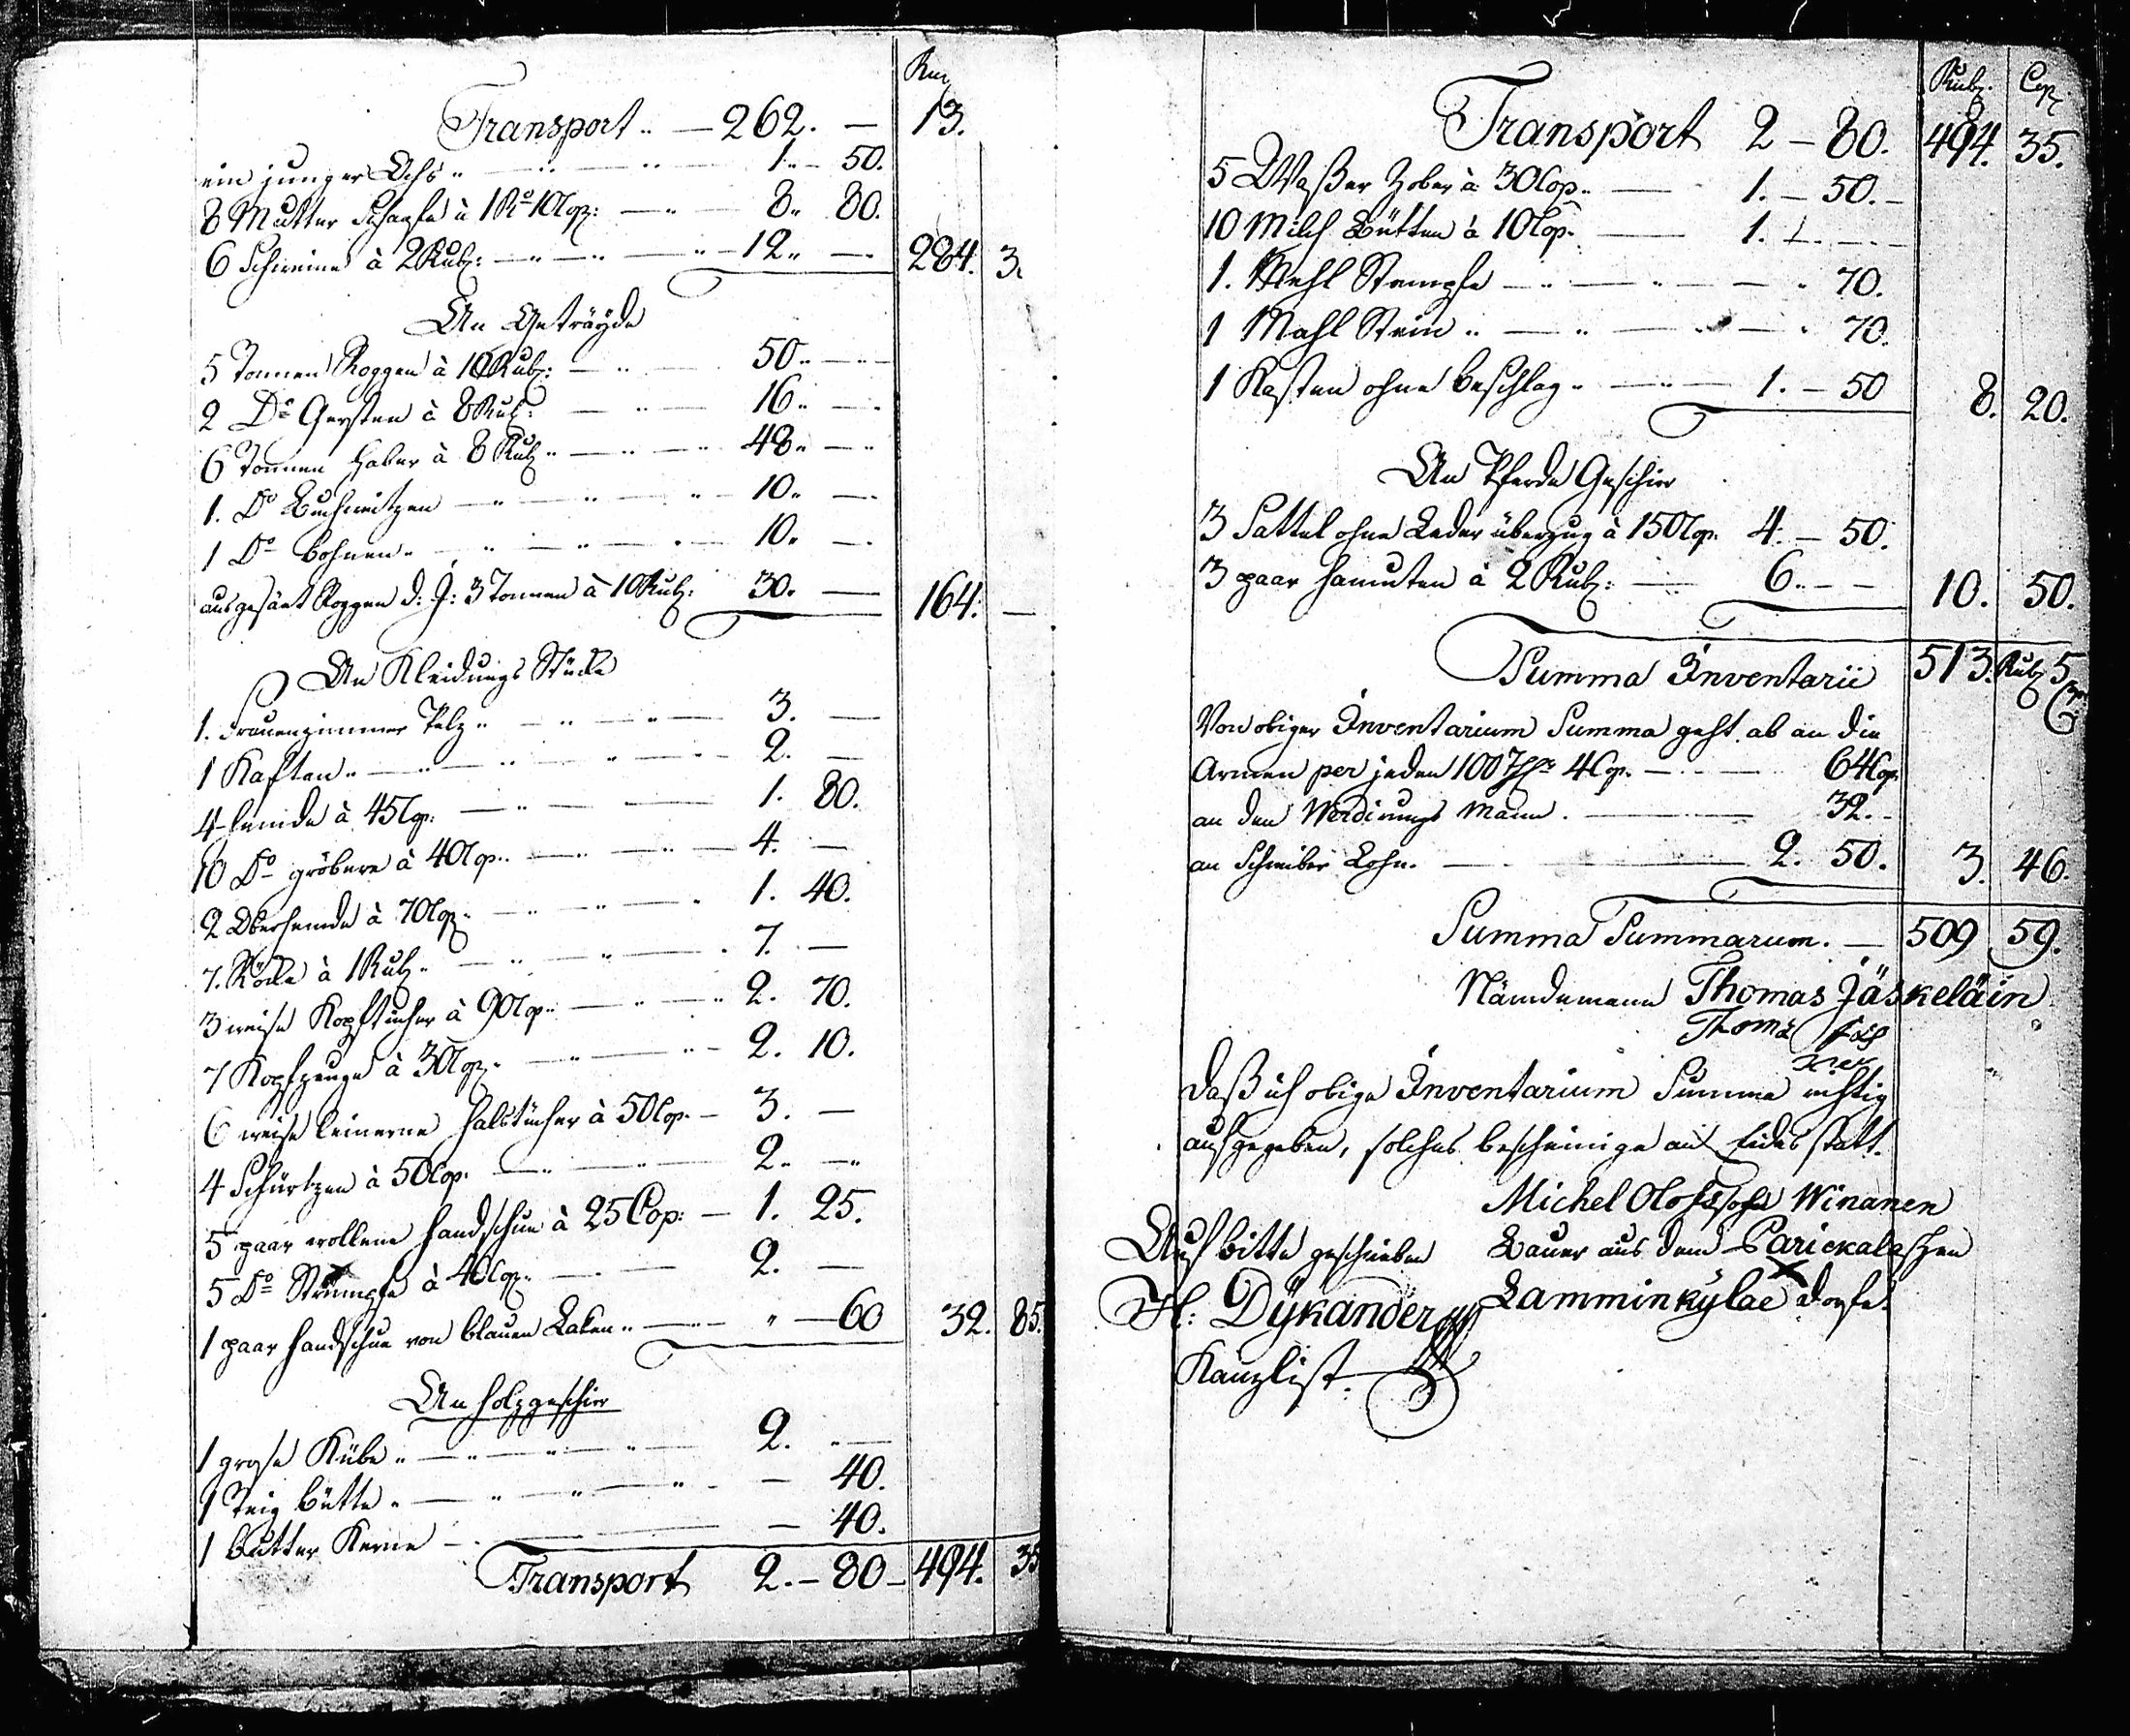 Rur
Transport .. — 262. — 13.
ein junger Ochs .. — 1. — 50.
8 Mutter Schaafe à 1 Ro 10 Cop: — 8. 80.
6 Schweine à 2 Rub: — 12. — 284. 3.
An Geträyde
5 Tonnen Roggen à 10 Rub: — 50. —
2 Do Gersten à 8 Rub: — 16. —
6 Tonnen Haber à 8 Rub .. — 48. —
1. Do Buchweitzen — 10. —
1 Do Bohnen. — 10. —
ausgesäet Roggen d: J: 3 Tonnen à 10 Rub: 30. — 164. —
An Kleidungs Stücke
1. Frauenzimmer Pelz .. — 3. —
1 Kaftan .. — 2. —
4 Hemde à 45 Cop: — 1. 80.
10 Do gröbere à 40 Cop.. — 4. —
2 Oberhemde à 70 Cop. — 1. 40.
7. Röcke à 1 Rub .. — 7. —
3 weise Kopftücher à 90 Cop.. — 2. 70.
7 Kopfzeuge à 30 Cop. — 2. 10.
6 weise leinerne Halstücher à 50 Cop. — 3. —
4 Schürtzen à 50 Cop. — 2. —
5 paar wollene Handschue à 25 Cop: — 1. 25.
5 Do Strümpfe à 40 Cop. — 2. —
1 paar Handschue von blauen Laken .. — " — 60 32. 85.
An Holzgeschirr
1 grose Kübe .. — 2. —
1 Teig Bütte. — 40.
1 Butter Kerne — 40.
Transport 2. — 80 — 494. 35
Rub. Cop
Transport 2 — 80. 494. 35.
5 Waßer Zober à 30 Cop.. — 1. — 50. —
10 Milch Bütten à 10 Cop. — 1. —
1. Mehl Stampfe — 70.
1 Mahl Stein .. — 70.
1 Kasten ohne Beschlag .. — 1. — 50 8. 20.
An Pferde Geschirr
3 Sattel ohne Leder überzug à 150 Cop. 4. — 50.
3 paar Hamuten à 2 Rub: — 6. — 10. 50.
Summa Inventarii 513. Rub 5 Cop
Von obiger Inventarium Summa geht ab an die
Armen per jeden 100 4 Cop. — 64 Cop.
an den Werdirungs Mann. — 32. -
an Schreiber Lohn. — 2. 50. 3. 46.
Summa Summarum. — 509 59.
Nämdemann Thomas Jäskeläin
Thoma
Daß ich obige Inventarium Summe richtig
aufgegeben, solches bescheinige an Eides statt.
Michel Olofssohn Winanen
Auf bitte geschrieben Bauer aus dem Parickalaschen
H: Dÿkander Lamminkÿlae Dorfe.
Kanzlist.